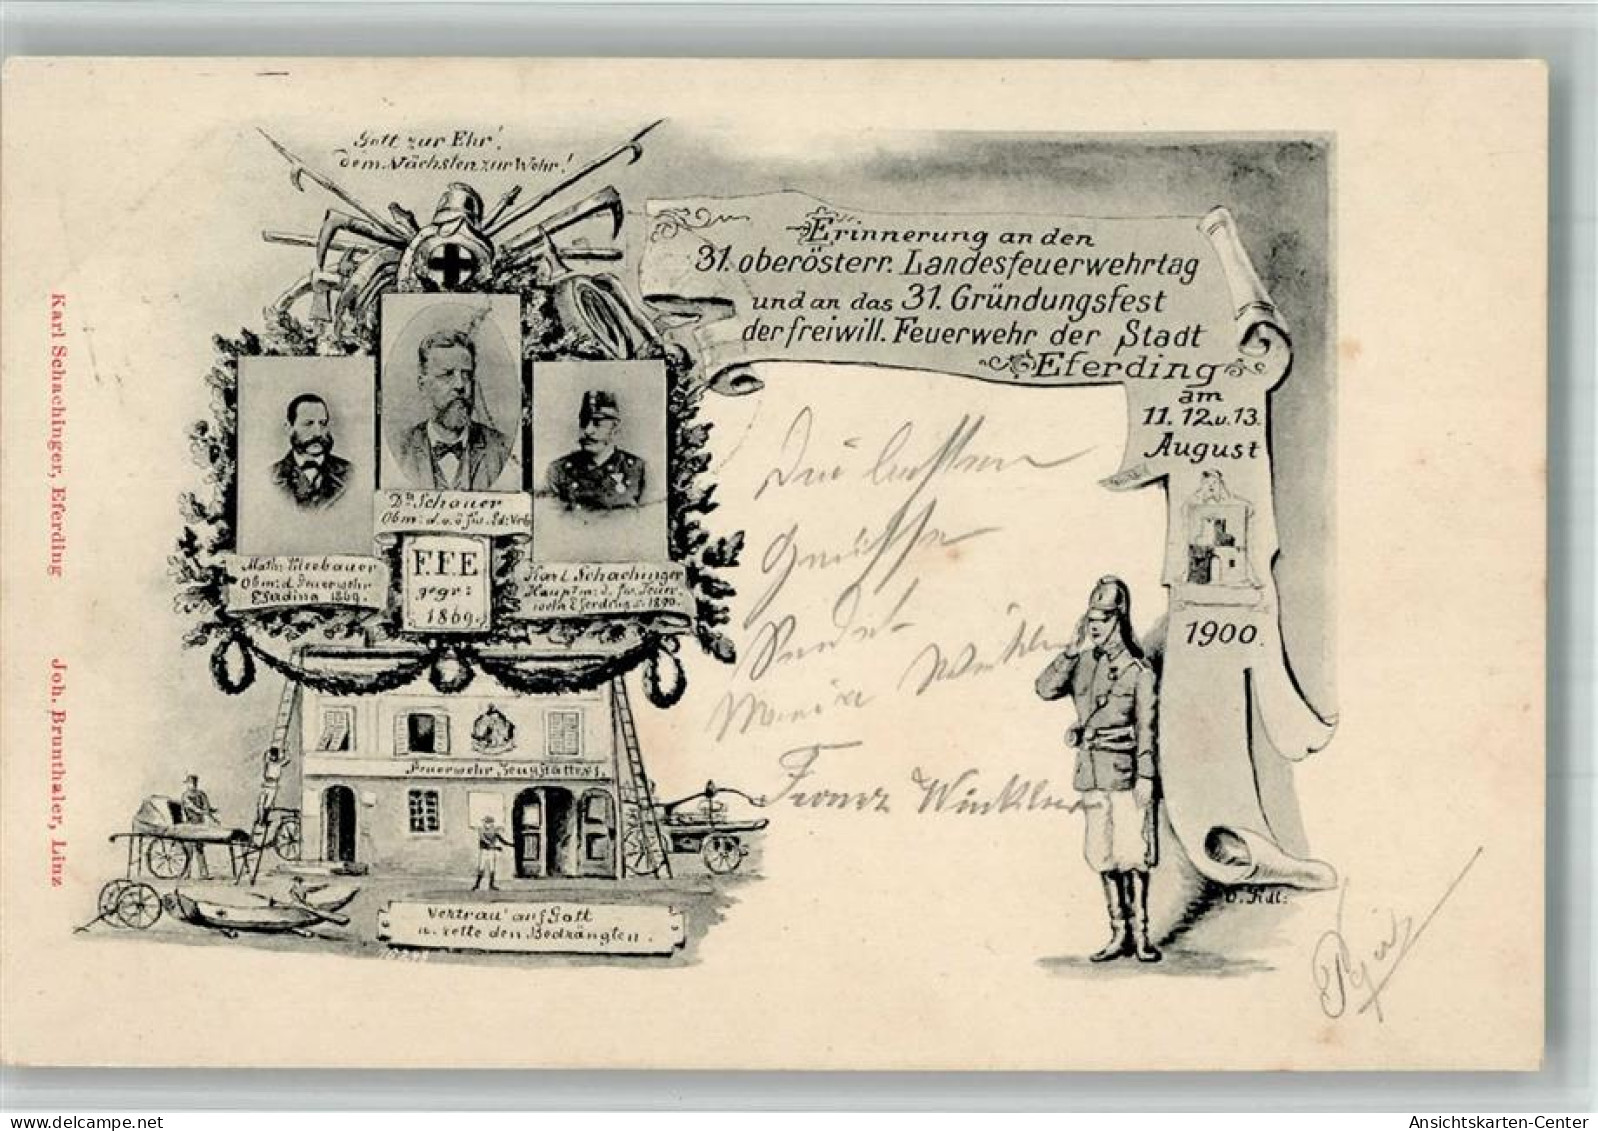 Gott zur Ehr!
dem Nächsten zur Wehr!
Erinnerung an den
31. oberösterr. Landesfeuerwehrtag
und an das 31. Gründungsfest
der freiwill. Feuerwehr der Stadt
Eferding
am
11. 12. u. 13.
August
1900.
Dr. Schauer
Obm: d. o. ö.
F.F.E
gegr:
1869.
Math:
Obm: d. Feuerwehr
Eferding 1869.
Karl Schachinger
Hauptm: d. fw. Feuer-
weh. Eferding s. 1890.
Feuerwehr Zeugstätte
Vertrau' auf Gott
u. rette den Bedrängten.
Die besten
Grüsse
Sendet
Winkler
Franz Winkler
Karl Schachinger, Eferding
Joh. Brunthaler, Linz
Ansichtskarten-Center